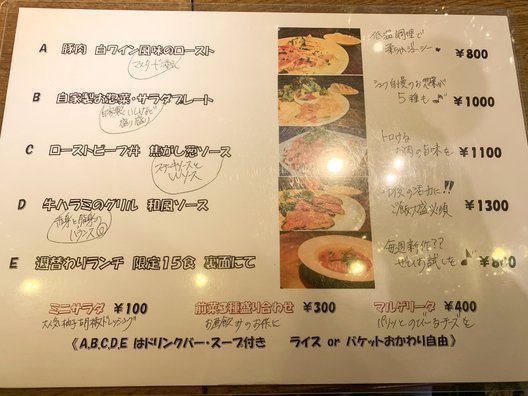 A 豚肉 白ワイン風味のロースト
低温調理で
¥800
B 自家製お惣菜・サラダプレート
シェフ自慢のお惣菜が
5種も
¥1000
C ローストビーフ丼 焦がし葱ソース
トロけな
お肉の旨味を
¥1100
D 牛ハラミのグリル 和風ソース
ご飯大盛必須
¥1300
E 週替わりランチ 限定15食 裏面にて
毎週新作??
ぜひお試しを
ミニサラダ ¥100 前菜3種盛り合わせ ¥300 マルゲリータ ¥400
大人気柚子胡椒ドレッシング
パリッとのび〜るチーズを
《 A,B,C,D,E はドリンクバー・スープ付き ライス or バケットおかわり自由 》